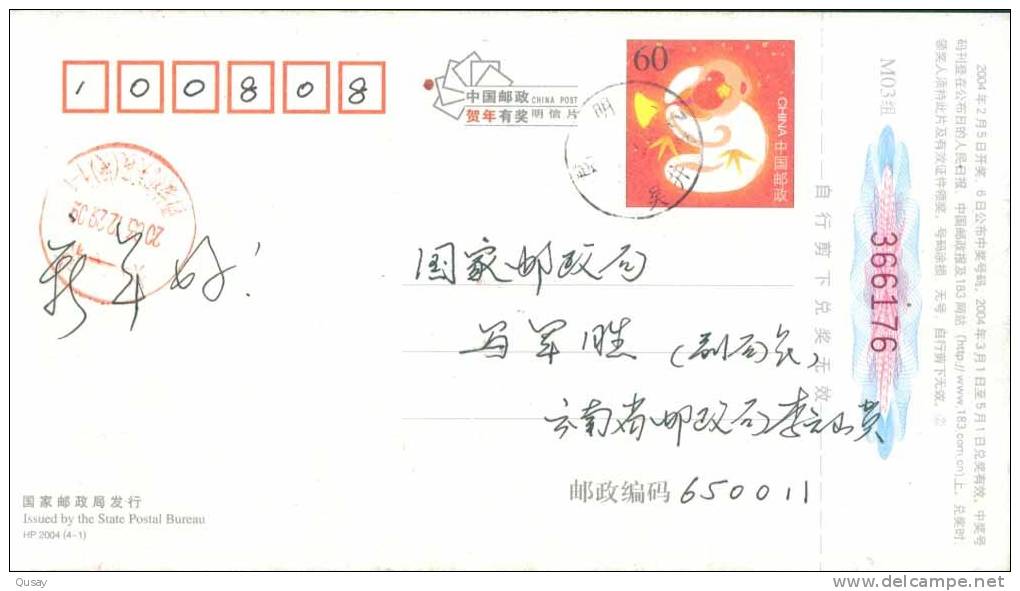 100808
中国邮政 CHINA POST
贺年有奖 明信片
60
CHINA 中国邮政
昆明
2003.12.29.09
新年好!
国家邮政局
马军胜(副局长)
云南省邮政局李
邮政编码 650011
国家邮政局发行
Issued by the State Postal Bureau
HP 2004 (4-1)
自行剪下兑奖无效
M03组
366176
2004年2月5日开奖,6日公布中奖号码,2004年3月1日至5月1日兑奖有效。中奖号
码刊登在公布日的人民日报、中国邮政报及183网站(http://www.183.com.cn)上。兑奖时,
领奖人须持此片及有效证件领奖。号码涂损、无号、自行剪下无效。②
Qusay
delcampe.net